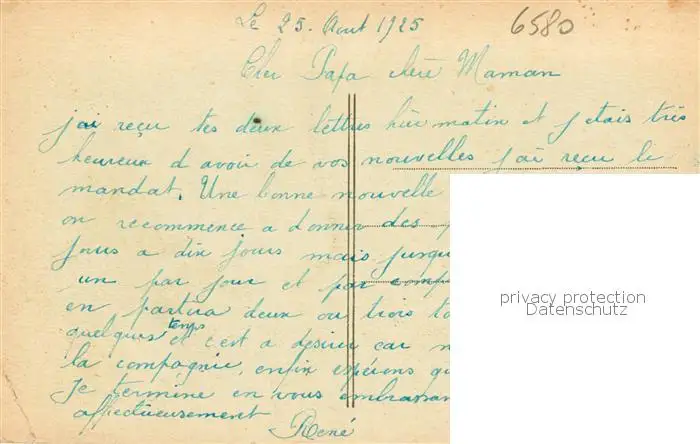 Le 25. Aout 1925
6580
Cher Papa chère Maman
j'ai reçu tes deux lettres hier matin et j etais très
heureux d avoir de vos nouvelles j'ai reçu le
mandat. Une bonne nouvelle
on recommence a donner des
jours a dix jours mais jusqu
un par jour et par comp
en partira deux ou trois
quelques temps et c'est a desirer car
la compagnie, enfin espérons
Je termine en vous embrassan
affectueusement
René
privacy protection
Datenschutz